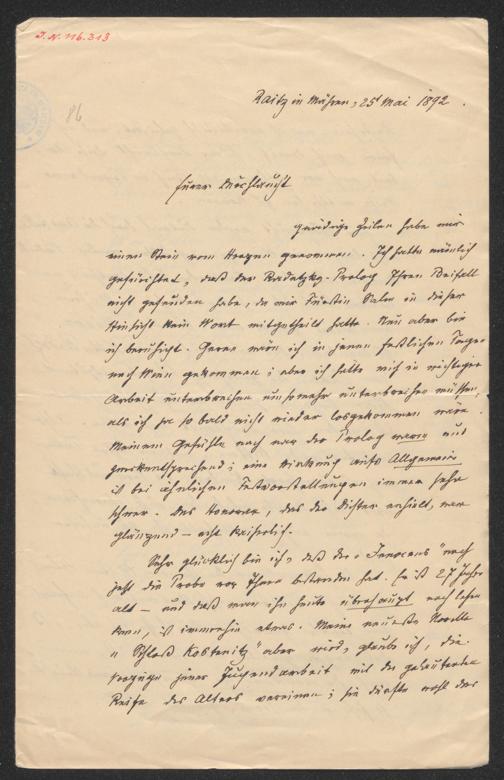 J. N. 116.313
86
Raitz in Mähren, 25t Mai 1892.
Euere Durchlaucht
gnädige Zeilen habe mir
einen Stein vom Herzen genommen. Ich hatte nämlich
gefürchtet, daß der Radetzky-Prolog Ihren Beifall
nicht gefunden habe, da mir Fürstin Salm in dieser
Hinsicht kein Wort mitgetheilt hatte. Nun aber bin
ich beruhigt. Gerne wäre ich in jenen festlichen Tagen
nach Wien gekommen; aber ich hatte mich in wichtiger
Arbeit unterbrechen umsomehr unterbrechen müssen,
als ich ja so bald nicht wieder losgekommen wäre.
Meinem Gefühle nach war der Prolog warm und
zweckentsprechend; eine Wirkung aufs Allgemeine
ist bei ähnlichen Festvorstellungen immer sehr
schwer. Das Honorar, das der Dichter erhielt, war
glänzend – echt kaiserlich.
Sehr glücklich bin ich, daß der „Innocens" noch
jetzt die Probe vor Ihnen bestanden hat. Er ist 27 Jahre
alt – und daß man ihn heute überhaupt noch lesen
kann, ist immerhin etwas. Meine neueste Novelle
„Schloß Kostenitz" aber wird, glaube ich, die
Vorzüge jener Jugendarbeit mit der geläuterten
Reife des Alters vereinen; sie dürfte wohl das